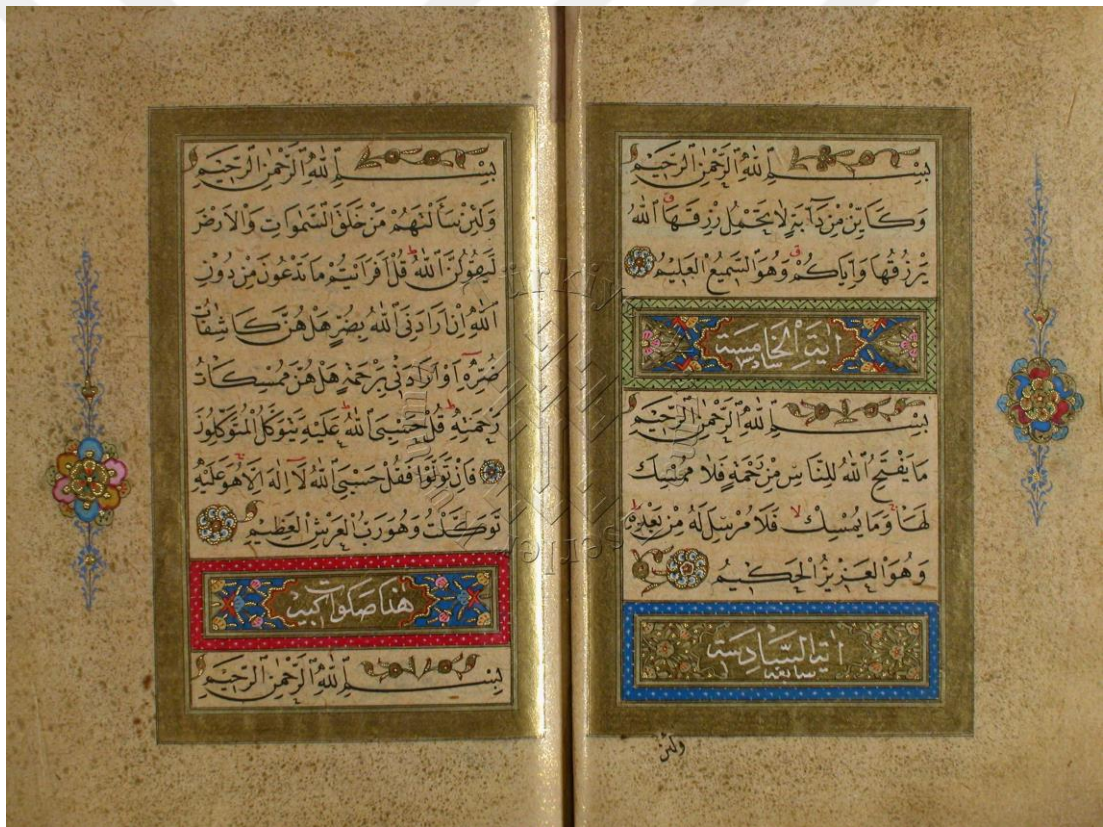 بِسْمِ اللّٰهِ الرَّحْمٰنِ الرَّحِيمِ
وَكَاَيِّنْ مِنْ دَٓابَّةٍ لَا تَحْمِلُ رِزْقَهَا ق اَللّٰهُ
يَرْزُقُهَا وَاِيَّاكُمْ ق وَهُوَ السَّمِيعُ الْعَلِيمُ
اٰيَةُ الْخَامِسَة
سادس
بِسْمِ اللّٰهِ الرَّحْمٰنِ الرَّحِيمِ
مَا يَفْتَحِ اللّٰهُ لِلنَّاسِ مِنْ رَحْمَةٍ فَلَا مُمْسِكَ
لَهَا وَمَا يُمْسِكْ لا فَلَا مُرْسِلَ لَهُ مِنْ بَعْدِهِ ط
وَهُوَ الْعَزِيزُ الْحَكِيمُ
اٰيَةُ السَّادِسَة
سابعة
ولئن
بِسْمِ اللّٰهِ الرَّحْمٰنِ الرَّحِيمِ
وَلَئِنْ سَاَلْتَهُمْ مَنْ خَلَقَ السَّمٰوَاتِ وَالْاَرْضَ
لَيَقُولُنَّ اللّٰهُ ط قُلْ اَفَرَاَيْتُمْ مَا تَدْعُونَ مِنْ دُونِ
اللّٰهِ اِنْ اَرَادَنِيَ اللّٰهُ بِضُرٍّ هَلْ هُنَّ كَاشِفَاتُ
ضُرِّهِٓ اَوْ اَرَادَنِي بِرَحْمَةٍ هَلْ هُنَّ مُمْسِكَاتُ
رَحْمَتِهِ ط قُلْ حَسْبِيَ اللّٰهُ ط عَلَيْهِ يَتَوَكَّلُ الْمُتَوَكِّلُونَ
فَاِنْ تَوَلَّوْا فَقُلْ حَسْبِيَ اللّٰهُ لَٓا اِلٰهَ اِلَّا هُوَ عَلَيْهِ
تَوَكَّلْتُ وَهُوَ رَبُّ الْعَرْشِ الْعَظِيمِ
هٰذَا صَلَوَات كبير
بِسْمِ اللّٰهِ الرَّحْمٰنِ الرَّحِيمِ